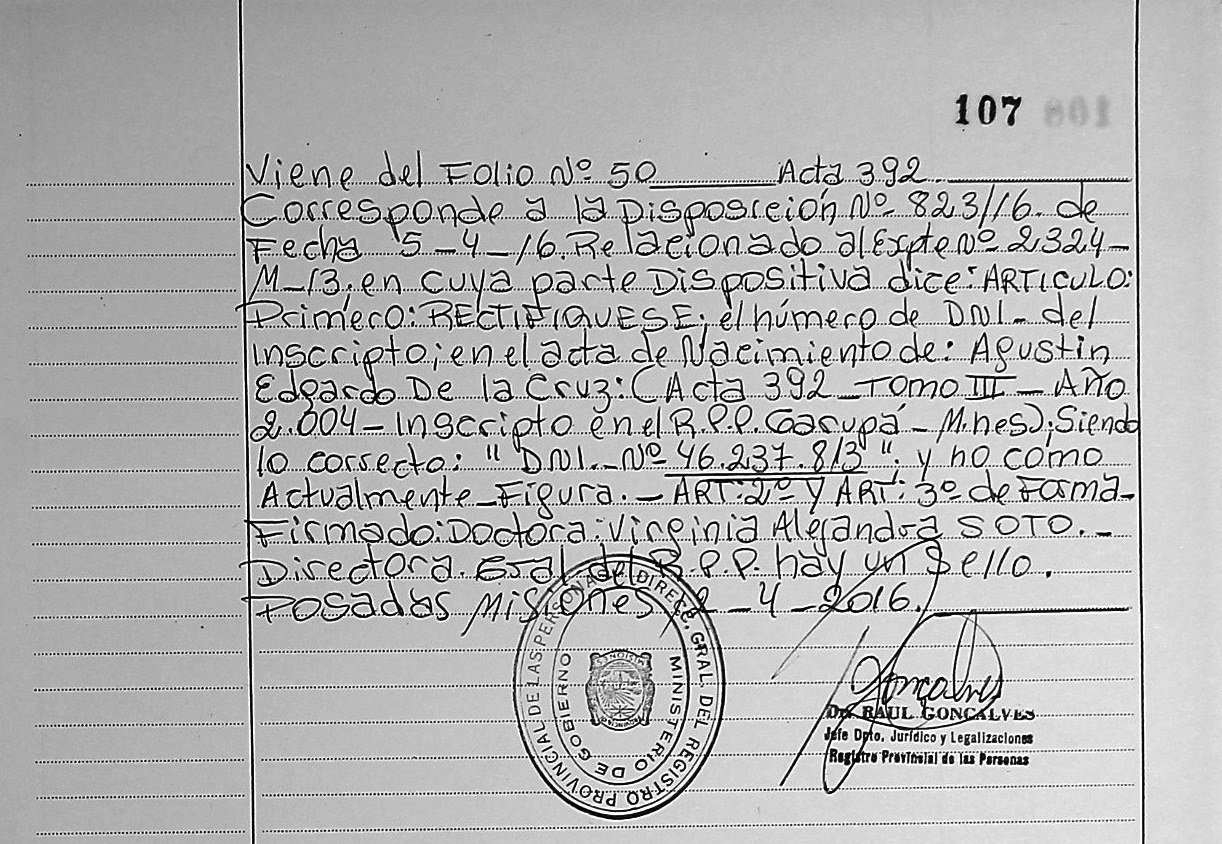 107 801
Viene del Folio Nº 50 Acta 392
Corresponde a la Disposición Nº 823/16. de
Fecha 5-4-16. Relacionado al Expte Nº 2324-
M-13, en cuya parte Dispositiva dice: ARTICULO:
Primero: RECTIFIQUESE; el número de DNI- del
Inscripto; en el acta de Nacimiento de: Agustin
Edgardo De la Cruz: (Acta 392 - Tomo III - Año
2.004 - Inscripto en el R.P.P. Garupá - Mnes); Siendo
lo correcto: " DNI.- Nº 46.237.813 "; y no como
Actualmente Figura. - ART: 2º y ART: 3º de Forma-
Firmado: Doctora: Virginia Alejandra SOTO. -
Directora. Gral del R.P.P. hay un Sello.
Posadas Misiones, - 4 - 2016.
DIREC. GRAL. DEL REGISTRO PROVINCIAL DE LAS PERSONAS
MINISTERIO DE GOBIERNO
Goncalves
Dr. RAUL GONCALVES
Jefe Dpto. Jurídico y Legalizaciones
Registro Provincial de las Personas